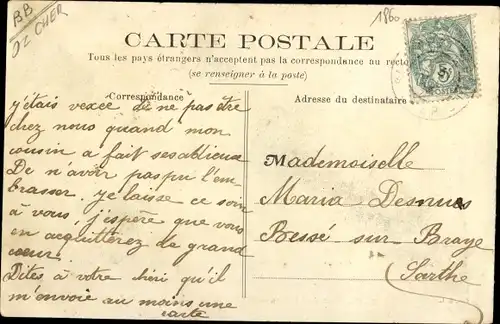 BB
22 CHER
1860
CARTE POSTALE
Tous les pays étrangers n'acceptent pas la correspondance au recto
(se renseigner à la poste)
Correspondance
Adresse du destinataire
j'étais vexée de ne pas être
chez nous quand mon
cousin a fait ses adieux
De n'avoir pas pu l'em-
brasser. je laisse ce soin
à vous, j'espère que vous
en acquitterez de grand
cœur.
Dites à votre chéri qu'il
m'envoie au moins une
carte
Mademoiselle
Maria Desnues
Bessé sur Braye
Sarthe
5